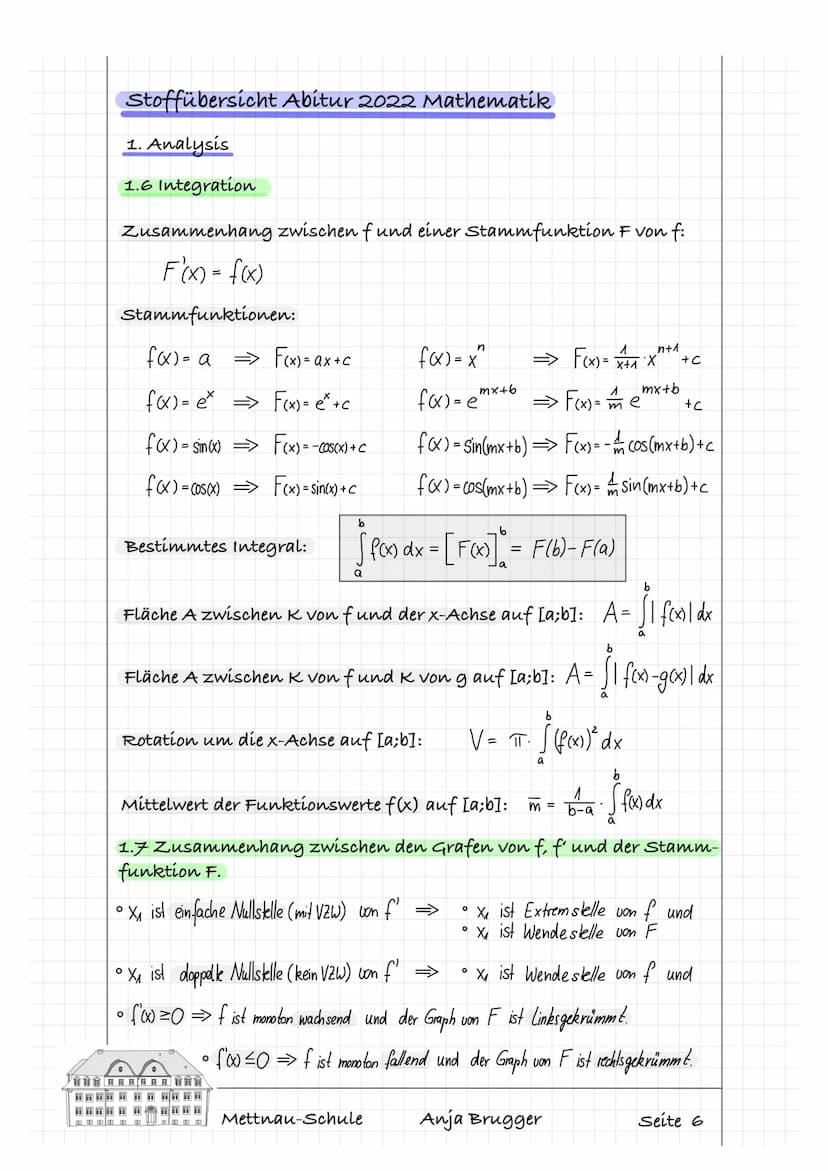 Stoffübersicht Abitur 2022 Mathematik
1. Analysis
1.6 Integration
Zusammenhang zwischen f und einer Stammfunktion F von f:
F'(x) = f(x)
Stammfunktionen:
f(x) = a ⇒ F(x) = ax+c f(x) = xⁿ ⇒ F(x) = 1/(x+1) · x^(n+1) +c
f(x) = e^x ⇒ F(x) = e^x +c f(x) = e^(mx+b) ⇒ F(x) = 1/m e^(mx+b) +c
f(x) = sin(x) ⇒ F(x) = -cos(x)+c f(x) = sin(mx+b) ⇒ F(x) = -1/m cos(mx+b)+c
f(x) = cos(x) ⇒ F(x) = sin(x)+c f(x) = cos(mx+b) ⇒ F(x) = 1/m sin(mx+b)+c
Bestimmtes Integral: ∫_a^b f(x) dx = [F(x)]_a^b = F(b) - F(a)
Fläche A zwischen K von f und der x-Achse auf [a;b]: A = ∫_a^b |f(x)| dx
Fläche A zwischen K von f und K von g auf [a;b]: A = ∫_a^b |f(x)-g(x)| dx
Rotation um die x-Achse auf [a;b]: V = π · ∫_a^b (f(x))² dx
Mittelwert der Funktionswerte f(x) auf [a;b]: m̅ = 1/(b-a) · ∫_a^b f(x) dx
1.7 Zusammenhang zwischen den Grafen von f, f' und der Stamm-
funktion F.
° x₁ ist einfache Nullstelle (mit VZW) von f' ⇒ ° x₁ ist Extremstelle von f und
° x₁ ist Wendestelle von F
° x₁ ist doppelte Nullstelle (kein VZW) von f' ⇒ ° x₁ ist Wendestelle von f und
° f'(x) ≥ 0 ⇒ f ist monoton wachsend und der Graph von F ist linksgekrümmt.
° f'(x) ≤ 0 ⇒ f ist monoton fallend und der Graph von F ist rechtsgekrümmt.
Mettnau-Schule Anja Brugger Seite 6